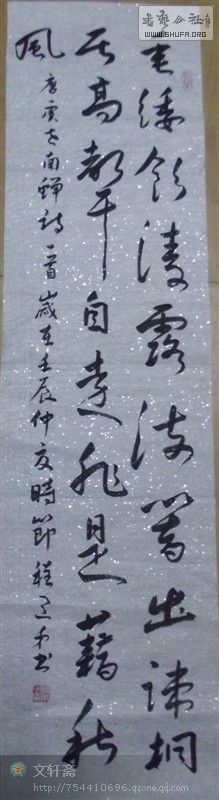 書藝公社
WWW.SHUFA.ORG
垂緌飲清露流響出疎桐
居高聲自遠非是藉秋
風
唐虞世南蟬詩一首歲在壬辰仲夏時節程書
文轩斋
http://754410696.qzone.qq.com